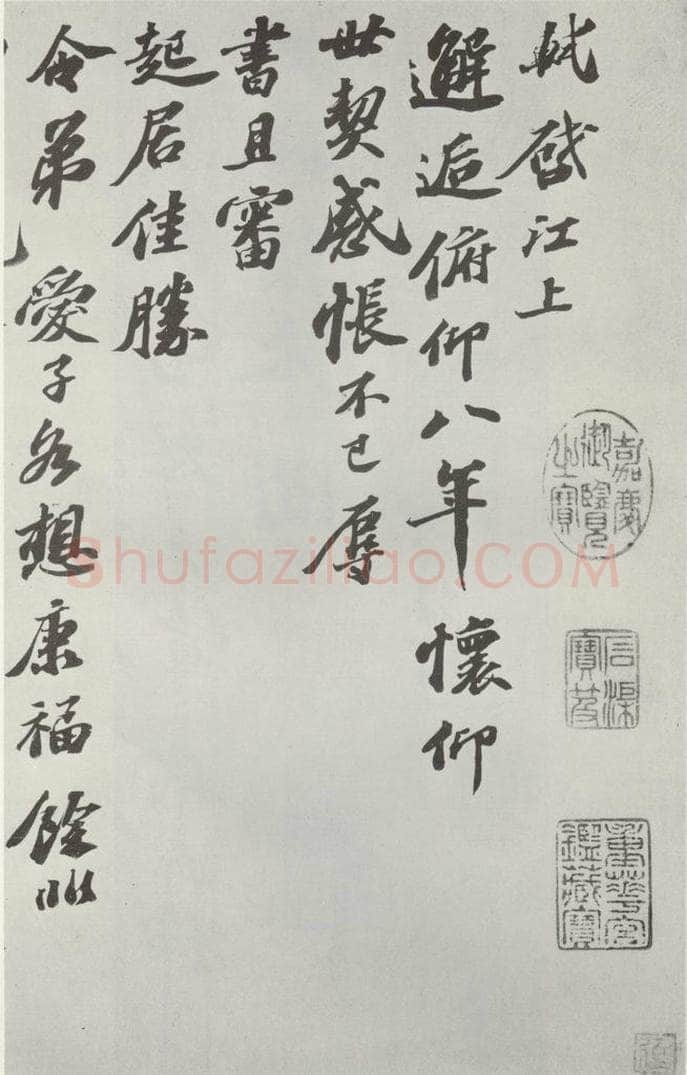 軾啓江上
邂逅俯仰八年懷仰
世契感悵不已辱
書且審
起居佳勝
令弟愛子各想康福餘非
嘉慶御覽之寶
石渠寶笈
重華宮鑑藏寶
Shufaziliao.COM